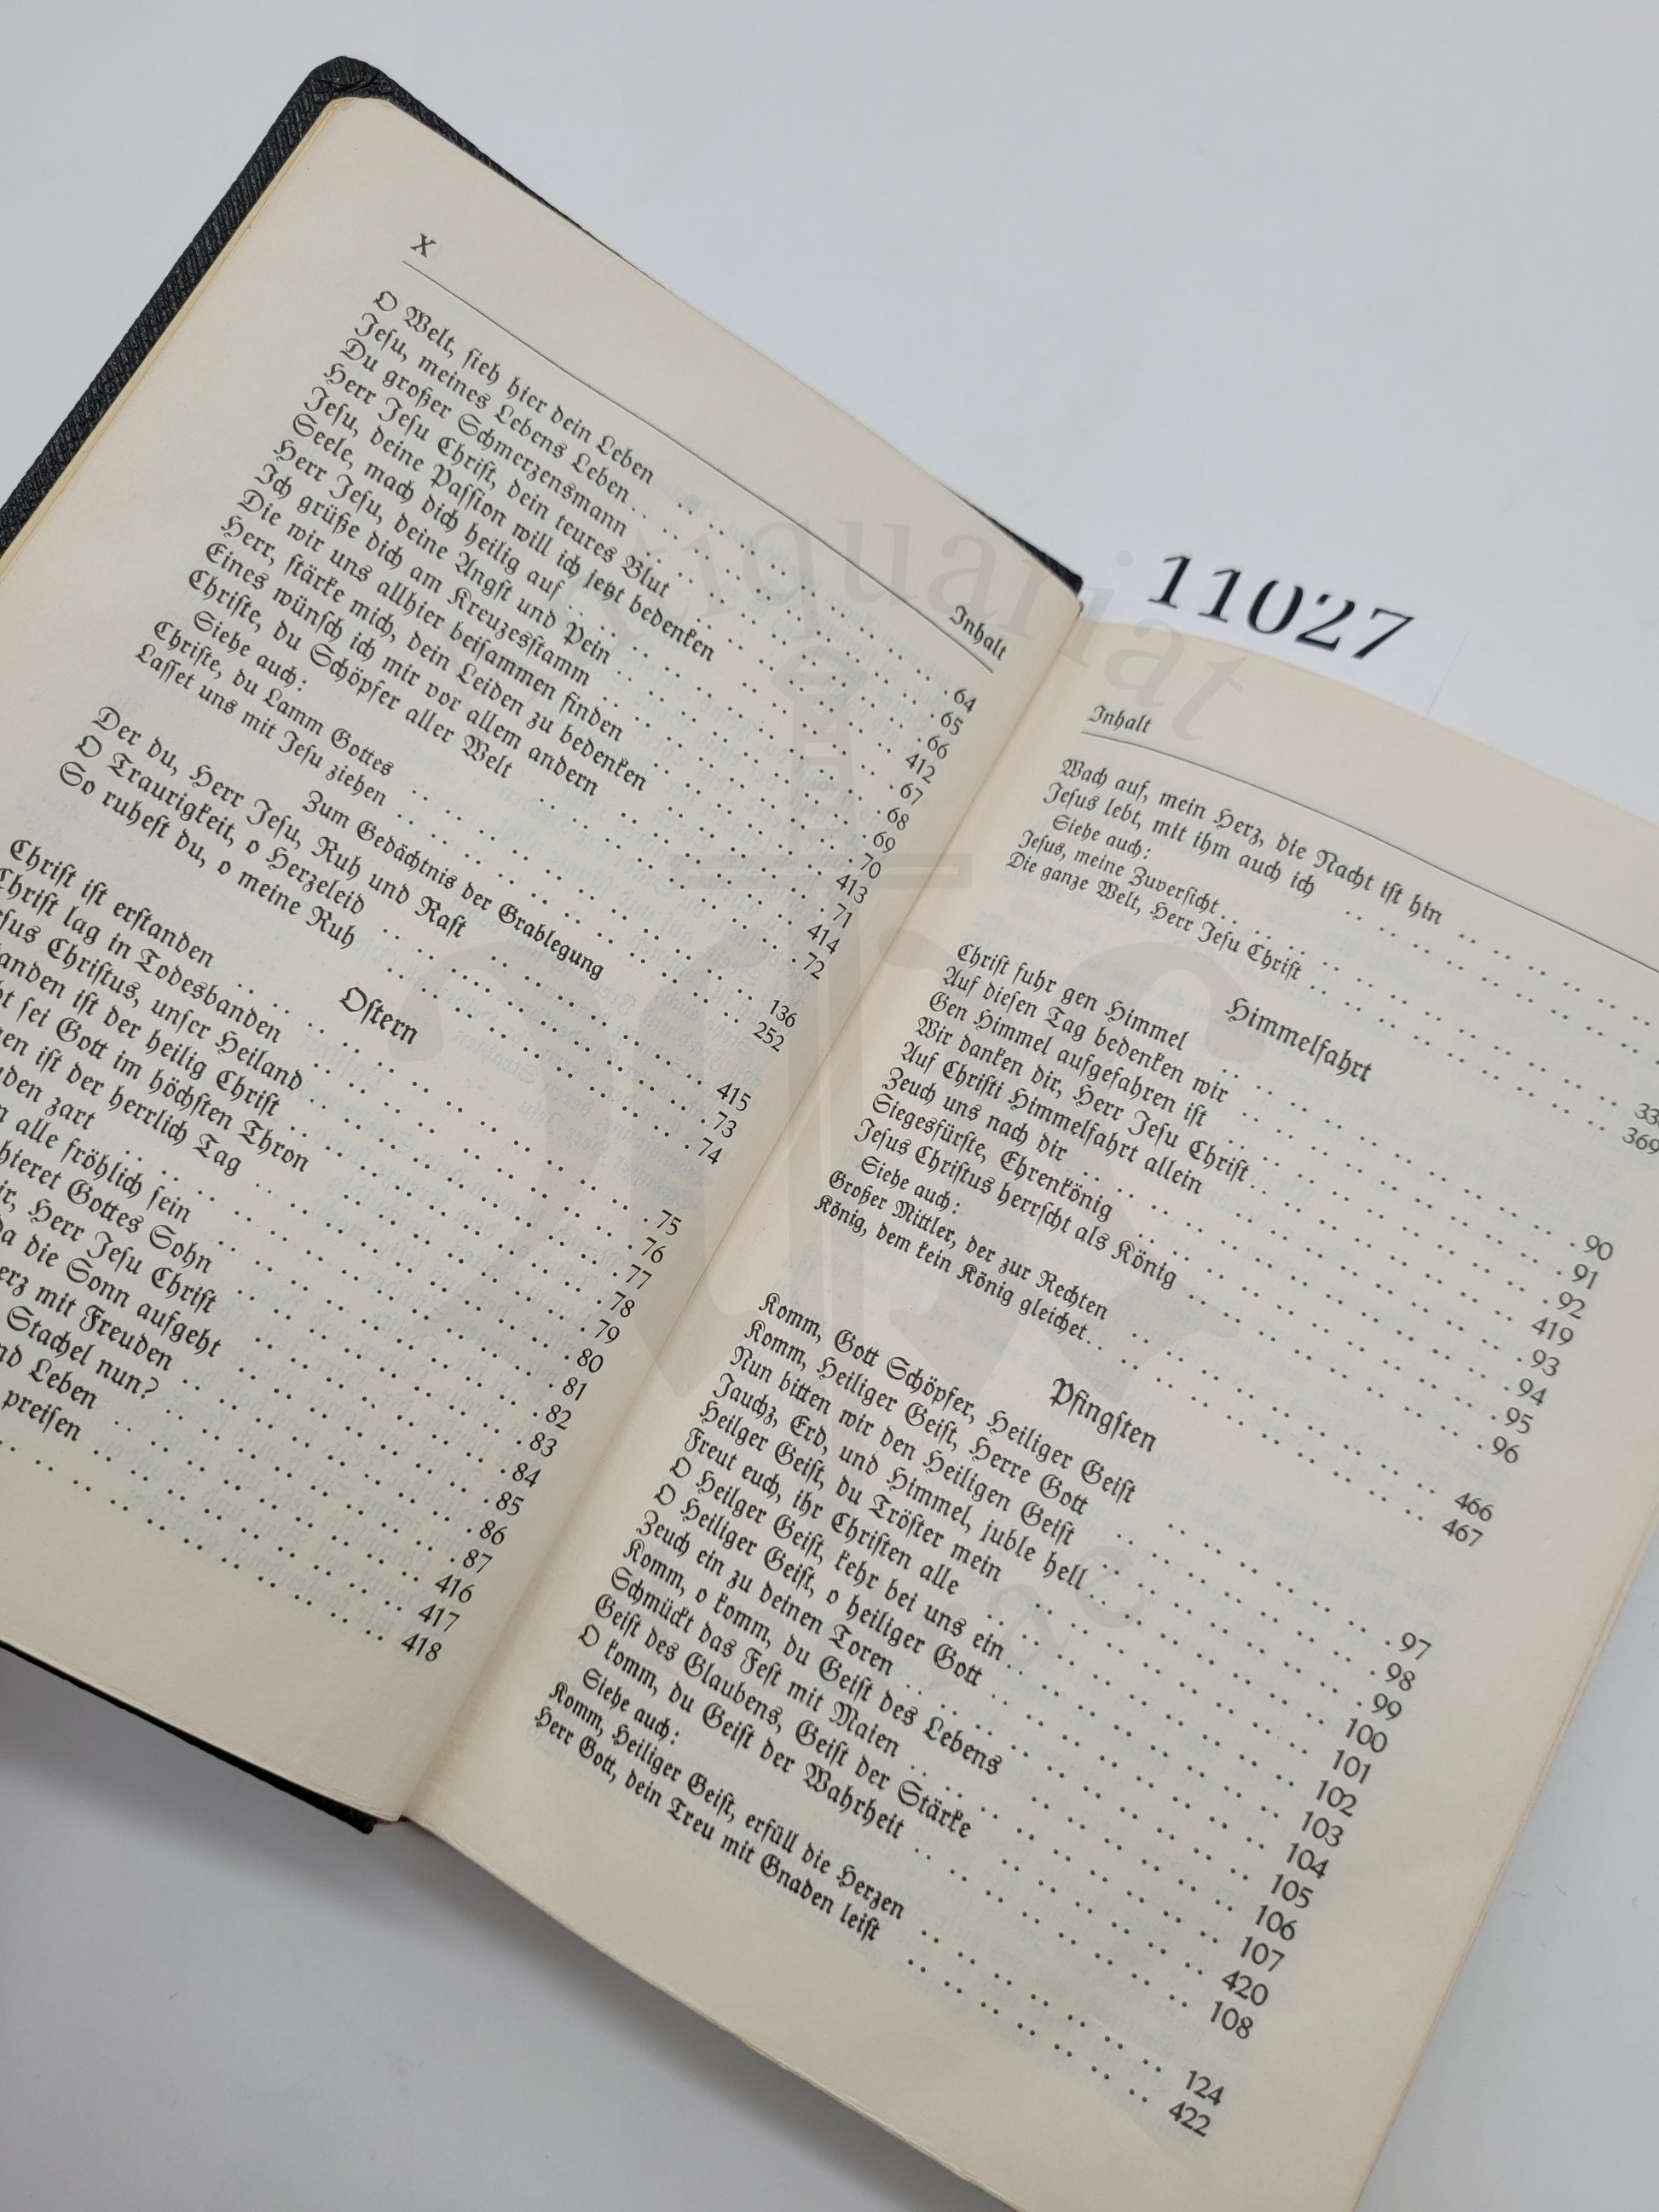 X
Inhalt
O Welt, sieh hier dein Leben 64
Jesu, meines Lebens Leben 65
Du großer Schmerzensmann 66
Herr Jesu Christ, dein teures Blut 412
Jesu, deine Passion will ich jetzt bedenken 67
Seele, mach dich heilig auf 68
Herr Jesu, deine Angst und Pein 69
Ich grüße dich am Kreuzesstamm 70
Die wir uns allhier beisammen finden 413
Herr, stärke mich, dein Leiden zu bedenken 71
Eines wünsch ich mir vor allem andern 414
Christe, du Schöpfer aller Welt 72
Siehe auch:
Christe, du Lamm Gottes 136
Lasset uns mit Jesu ziehen 252
Zum Gedächtnis der Grablegung
Der du, Herr Jesu, Ruh und Rast 415
O Traurigkeit, o Herzeleid 73
So ruhest du, o meine Ruh 74
Ostern
Christ ist erstanden 75
Christ lag in Todesbanden 76
sus Christus, unser Heiland 77
anden ist der heilig Christ 78
t sei Gott im höchsten Thron 79
en ist der herrlich Tag 80
den zart 81
n alle fröhlich sein 82
hieret Gottes Sohn 83
r, Herr Jesu Christ 84
da die Sonn aufgeht 85
erz mit Freuden 86
Stachel nun? 87
nd Leben 416
preisen 417
418
11027
Inhalt
Wach auf, mein Herz, die Nacht ist hin
Jesus lebt, mit ihm auch ich
Siehe auch:
Jesus, meine Zuversicht 33
Die ganze Welt, Herr Jesu Christ 369
Himmelfahrt
Christ fuhr gen Himmel 90
Auf diesen Tag bedenken wir 91
Gen Himmel aufgefahren ist 92
Wir danken dir, Herr Jesu Christ 419
Auf Christi Himmelfahrt allein 93
Zeuch uns nach dir 94
Siegesfürste, Ehrenkönig 95
Jesus Christus herrscht als König 96
Siehe auch:
Großer Mittler, der zur Rechten 466
König, dem kein König gleichet 467
Pfingsten
Komm, Gott Schöpfer, Heiliger Geist 97
Komm, Heiliger Geist, Herre Gott 98
Nun bitten wir den Heiligen Geist 99
Jauchz, Erd, und Himmel, juble hell 100
Heilger Geist, du Tröster mein 101
Freut euch, ihr Christen alle 102
O Heilger Geist, kehr bei uns ein 103
O Heiliger Geist, o heiliger Gott 104
Zeuch ein zu deinen Toren 105
Komm, o komm, du Geist des Lebens 106
Schmückt das Fest mit Maien 107
Geist des Glaubens, Geist der Stärke 420
O komm, du Geist der Wahrheit 108
Siehe auch:
Komm, Heiliger Geist, erfüll die Herzen 124
Herr Gott, dein Treu mit Gnaden leist 422